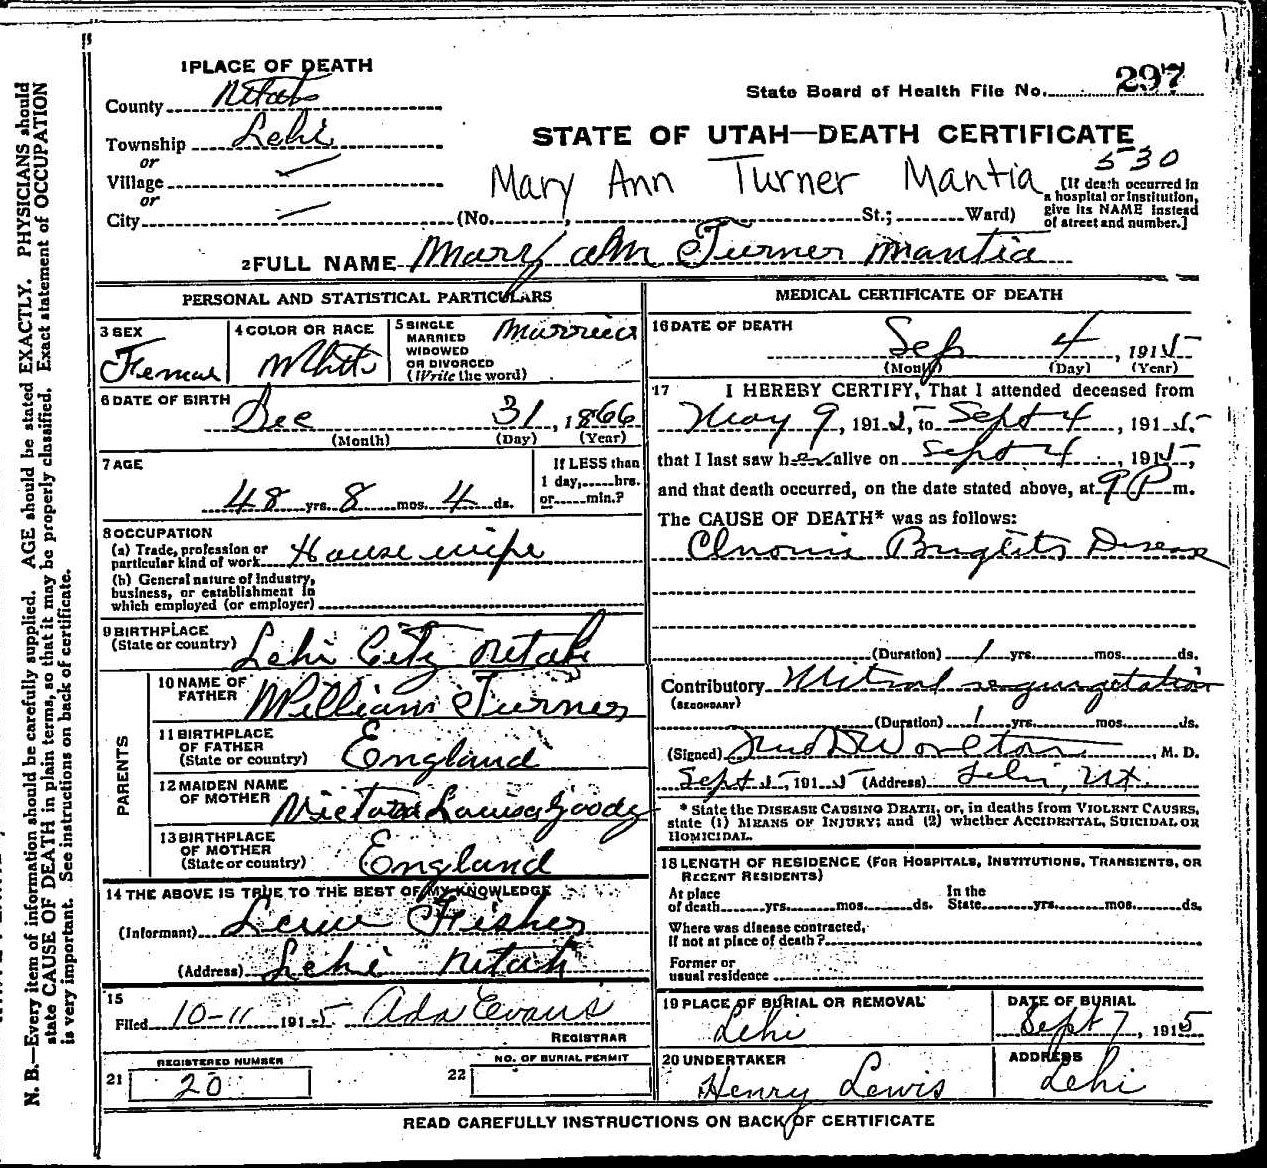 N. B.—Every item of information should be carefully supplied. AGE should be stated EXACTLY. PHYSICIANS should
state CAUSE OF DEATH in plain terms, so that it may be properly classified. Exact statement of OCCUPATION
is very important. See instructions on back of certificate.
1 PLACE OF DEATH
County Utah
Township Lehi
or
Village
or
City
State Board of Health File No. 297
STATE OF UTAH—DEATH CERTIFICATE
530
Mary Ann Turner Mantia
(No. , St.; Ward)
[If death occurred in
a hospital or institution,
give its NAME instead
of street and number.]
2 FULL NAME Mary Ann Turner Mantia
PERSONAL AND STATISTICAL PARTICULARS
3 SEX
Female
4 COLOR OR RACE
White
5 SINGLE
MARRIED
WIDOWED
OR DIVORCED
(Write the word)
Married
6 DATE OF BIRTH
Dec 31, 1866
(Month) (Day) (Year)
7 AGE
48 yrs. 8 mos. 4 ds.
If LESS than
1 day, hrs.
or min.?
8 OCCUPATION
(a) Trade, profession or
particular kind of work House wife
(b) General nature of Industry,
business, or establishment in
which employed (or employer)
9 BIRTHPLACE
(State or country) Lehi City Utah
PARENTS
10 NAME OF
FATHER William Turner
11 BIRTHPLACE
OF FATHER
(State or country) England
12 MAIDEN NAME
OF MOTHER Louisa Goody
13 BIRTHPLACE
OF MOTHER
(State or country) England
14 THE ABOVE IS TRUE TO THE BEST OF MY KNOWLEDGE
(Informant) Fisher
(Address) Lehi Utah
15
Filed 10-11 1915 Ada Evans
REGISTRAR
REGISTERED NUMBER
21 20
NO. OF BURIAL PERMIT
22
MEDICAL CERTIFICATE OF DEATH
16 DATE OF DEATH
Sep 4, 1915
(Month) (Day) (Year)
17 I HEREBY CERTIFY, That I attended deceased from
May 9, 1915, to Sept 4, 1915,
that I last saw her alive on Sept 4, 1915,
and that death occurred, on the date stated above, at 9 P m.
The CAUSE OF DEATH* was as follows:
Chronic Brights Disease
(Duration) 1 yrs. mos. ds.
Contributory Mitral regurgitation
(SECONDARY)
(Duration) 1 yrs. mos. ds.
(Signed) Worlton M. D.
Sept 5, 1915 (Address) Lehi, Ut.
* State the DISEASE CAUSING DEATH, or, in deaths from VIOLENT CAUSES,
state (1) MEANS OF INJURY; and (2) whether ACCIDENTAL, SUICIDAL OR
HOMICIDAL.
18 LENGTH OF RESIDENCE (FOR HOSPITALS, INSTITUTIONS, TRANSIENTS, OR
RECENT RESIDENTS)
At place
of death yrs. mos. ds.
In the
State yrs. mos. ds.
Where was disease contracted,
if not at place of death?
Former or
usual residence
19 PLACE OF BURIAL OR REMOVAL
Lehi
DATE OF BURIAL
Sept 7, 1915
20 UNDERTAKER
Henry Lewis
ADDRESS
Lehi
READ CAREFULLY INSTRUCTIONS ON BACK OF CERTIFICATE